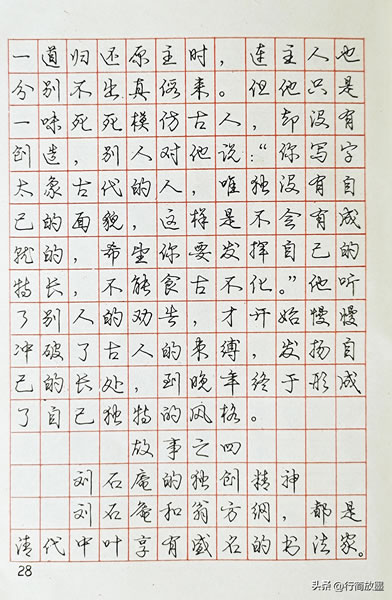 一道归还原主时，连主人也
分别不出真假来。但他只是
一味死死模仿古人，却没有
创造，别人对他说：“你写字
太象古代的人，唯独没有自
己的面貌，这样是不会有成
就的，希望你要发挥自己的
特长，不能食古不化。”他听
了别人的劝告，才开始慢慢
冲破了古人的束缚，发扬自
己的长处，到晚年终于形成
了自己独特的风格。
故事之四
刘石庵的独创精神
刘石庵和翁方纲，都是
清代中叶享有盛名的书法家。
28
头条 @行简放墨